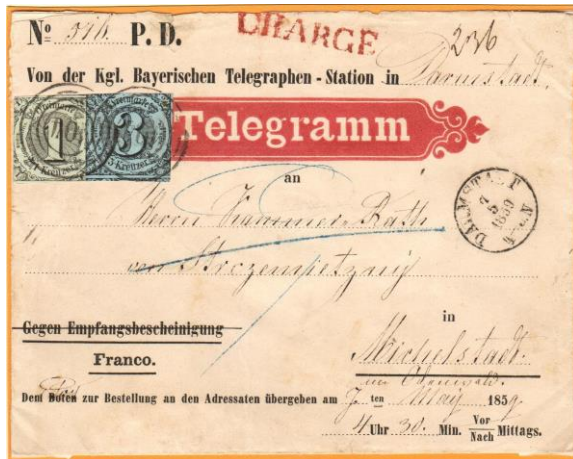 No 546. P. D. CHARGE 236
Von der Kgl. Bayerischen Telegraphen-Station in Darmstadt
1 3
Kreuzer
Telegramm
an
DARMSTADT
1859
Herrn Kammer-Rath
von
in
Gegen Empfangsbescheinigung
Franco.
Michelstadt.
im Odenwald.
Dem Boten zur Bestellung an den Adressaten übergeben am 7 ten May 1859.
4 Uhr 30. Min. Vor/Nach Mittags.